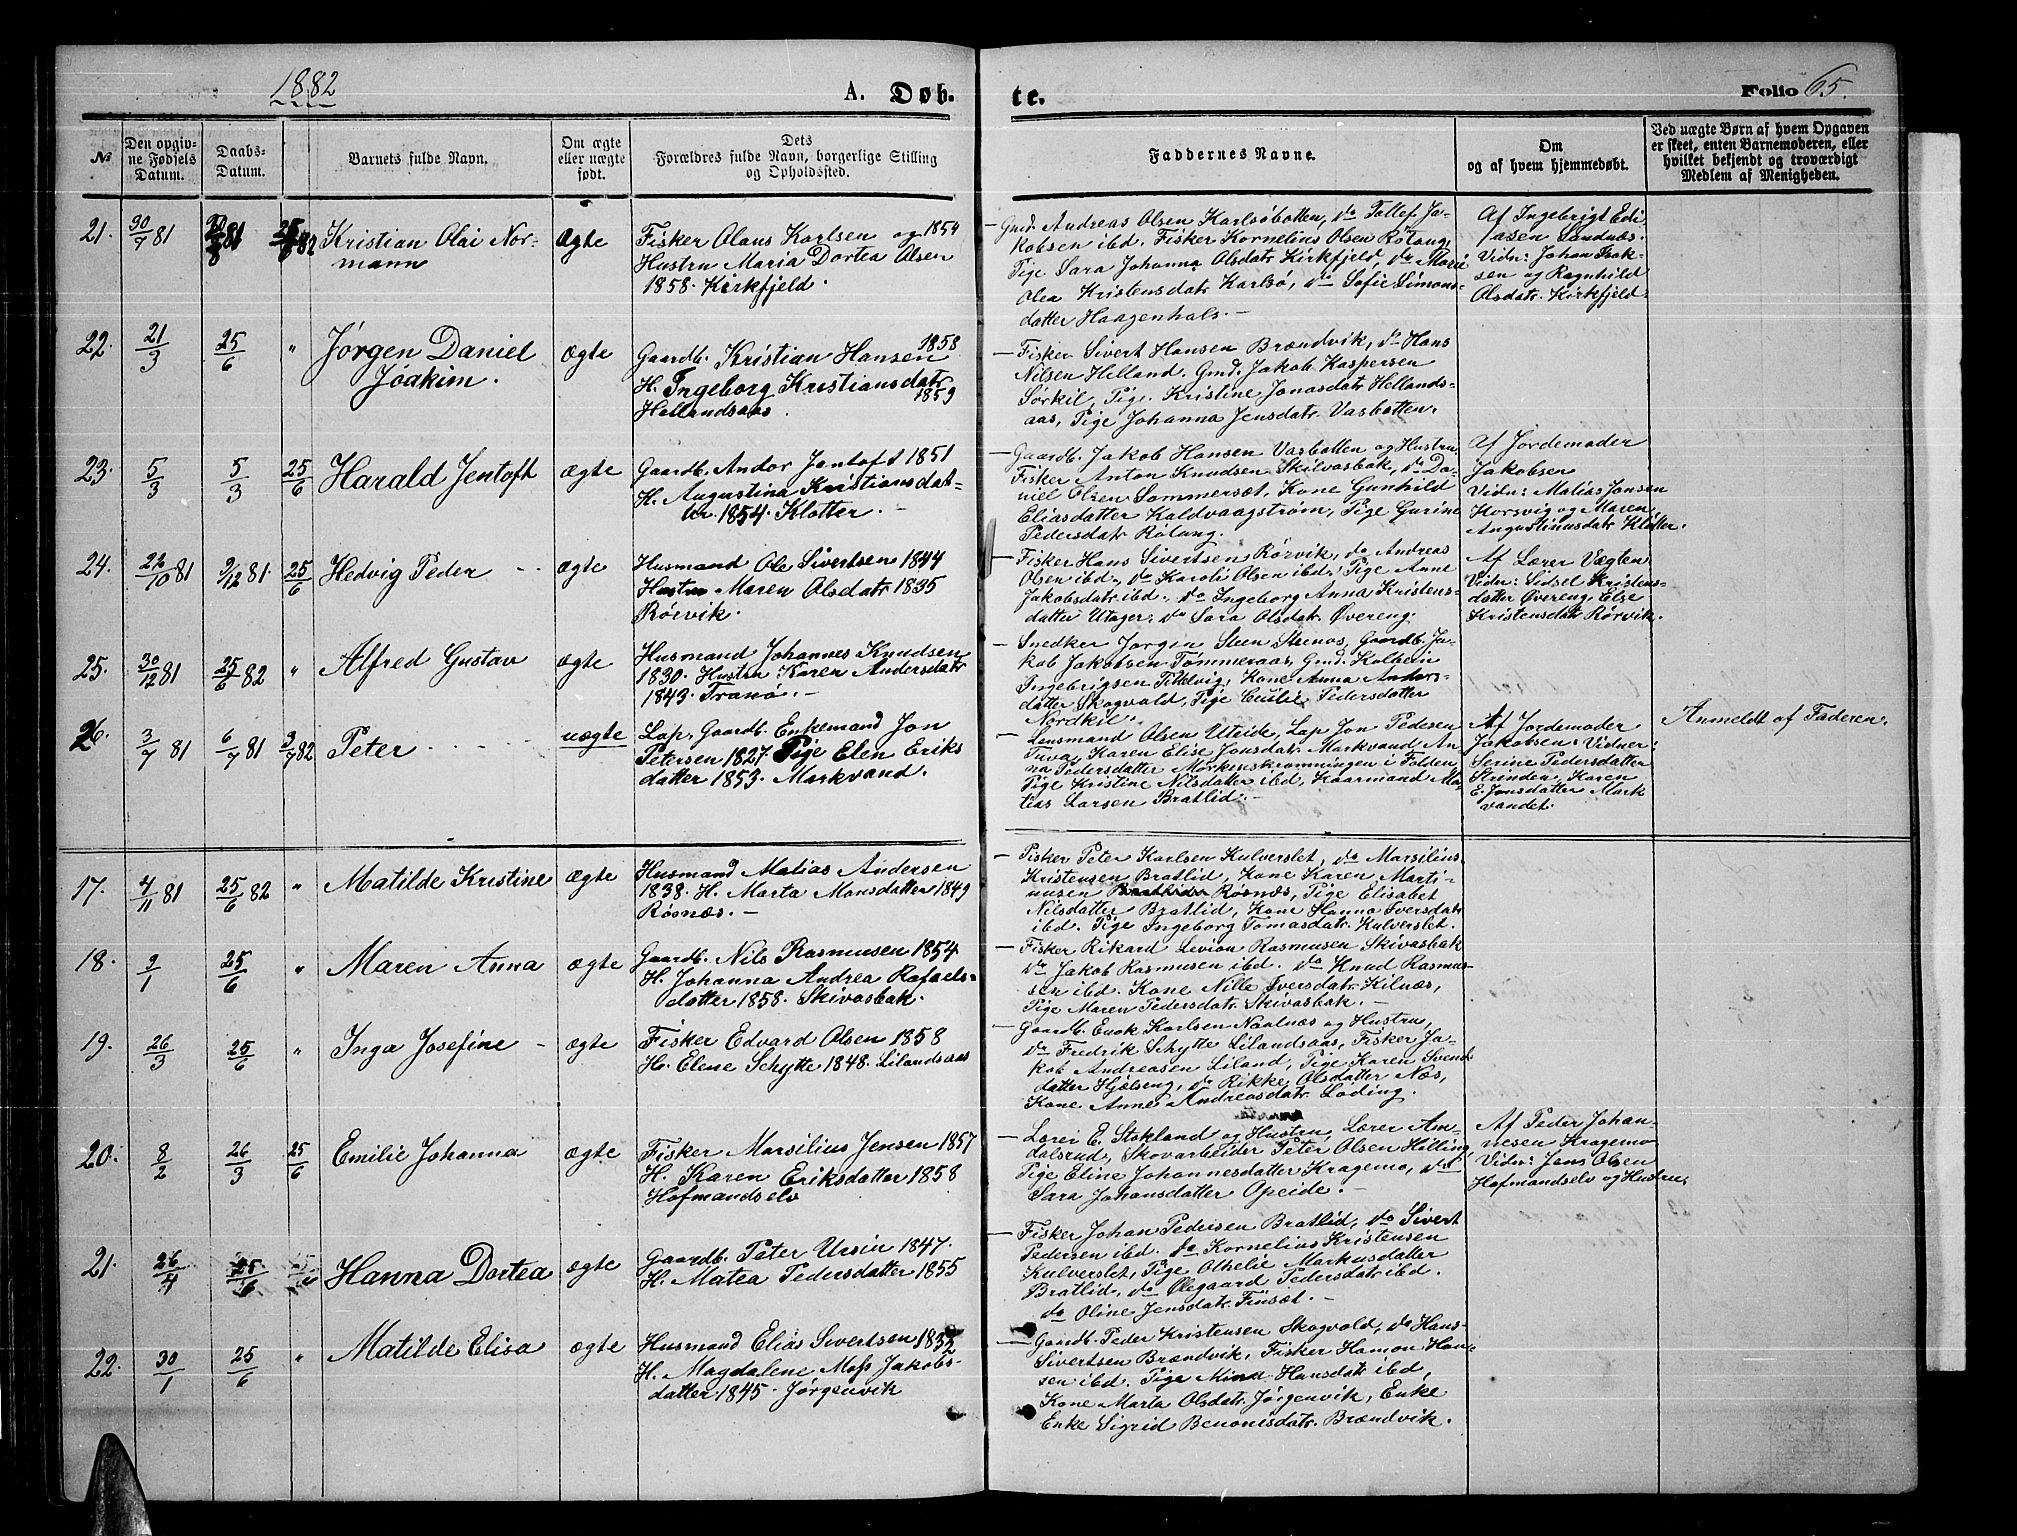 1882
A. Døb-
te.
Folio 65.
№
Den opgiv-
ne Fødsels
Datum.
Daabs-
Datum.
Barnets fulde Navn.
Om ægte
eller uægte
født.
Dets
Forældres fulde Navn, borgerlige Stilling
og Opholdssted.
Faddernes Navne.
Om
og af hvem hjemmedøbt.
Ved uægte Børn af hvem Opgaven
er skeet, enten Barnemoderen, eller
hvilket bekjendt og troværdigt
Medlem af Menigheden.
21. 30/7 81
Kristian Olai Nor-
mann
Ægte
Fisker Olaus Karlsen og 1854
Hustru Maria Dortea Olsen
1858. Kirkfjeld.
Gmd. Andreas Olsen Karlsøbotten, do Tollef Ja-
kobsen ibd. Fisker Kornelius Olsen Røtang,
Pige Sara Johanna Olsdatr Kirkfjeld, do Marie
Olea Kristensdatr Karlsø, do Sofie Simons-
datter Haagenhals.
Af Ingebrigt Edi-
asen Sandnæs.
Vidn: Johan Isak-
sen og Ragnhild
Olsdatr. Kirkfjeld.
22. 21/3 25/6 "
Jørgen Daniel
Joakim.
ægte
Gaardb. Kristian Hansen 1858
H. Ingeborg Kristiansdatr
1859
Hellandsaas.
Fisker Sivert Hansen Brændvik, do Hans
Nilsen Helland. Gmd. Jakob Kaspersen
Sørkil, Pige Kristine Jonasdatr Hellands-
aas, Pige Johanna Jensdatr Vasbotten.
23. 5/3 5/3 25/6
Harald Jentoft
ægte
Gaardb. Andor Jentoft 1851
H. Augustina Kristiansdat-
ter 1854. Klotter.
Gaardb. Jakob Hansen Vasbotten og Hustru,
Fisker Anton Knudsen Skilvasbak, do Da-
niel Olsen Sommersæt, Kone Gunhild
Eliasdatter Kaldvaagstrøm, Pige Gurine
Pedersdatr Røtang.
Af Jordemoder
Jakobsen
Vidn: Matias Jonsen
Korsvig og Maren
Augustinusdatr Klotter.
24. 22/10 81 9/12 81. 25/6
Hedvig Peder
ægte
Husmand Ole Sivertsen 1844
Hustru Maren Olsdatr 1835
Rørvik.
Fisker Hans Sivertsen Rørvik, do Andreas
Olsen ibd, do Karoli Olsen ibd, Pige Anne
Jakobsdatr ibd. do Ingeborg Anna Kristens-
datter Utager, do Sara Olsdatr Øvereng.
Af Lærer Vægten
Vidn: Sidsel Kristens-
datter Øvereng, Else
Kristensdatr Rørvik.
25. 30/12 81 25/6 82 "
Alfred Gustav
ægte
Husmand Johannes Knudsen
1830. Hustru Karen Andersdatr
1843. Tranø.
Snedker Jørgen Steen Stenos, Gaardb. Ja-
kob Jakobsen Tømmeraas, Gmd. Kolbein
Ingebrigsen Tittelvig, Kone Anna Anders-
datter Skogvold, Pige Pedersdatter
Nordkil.
26. 3/7 81 6/7 81 9/7 82
Peter
uægte
Lap, Gaardb. Enkemand Jon
Petersen 1827. Pige Elen Eriks
datter 1853. Markvand.
Lensmand Olsen Uteide, Lap Jon Pedersen
Tuva, Karen Elise Jonsdatr Markvand, An-
na Pedersdatter Mørkenskromningen i Folden,
Pige Kristine Nilsdatter ibd, Kaarmand Ma-
tias Larsen Bratlid.
Af Jordemoder
Jakobsen. Vidner:
Serine Pedersdatter
Strinden, Karen
E. Jonsdatter Mark
vandet.
Anmeldt af Faderen.
17. 4/11 81 25/6 82 "
Matilde Kristine
ægte
Husmand Matias Andersen
1838. H. Marta Monsdatter 1849
Røsnæs.
Fisker Peter Karlsen Kulverslet, do Marsilius
Kristensen Bratlid, Kone Karen Marti-
nusen Røsnæs, Pige Elisabet
Nilsdatter Bratlid, Kone Hanna Iversdatr
ibd. Pige Ingeborg Tomasdatr. Kulverslet.
18. 9/1 25/6 "
Maren Anna
ægte
Gaardb. Nils Rasmusen 1854.
H. Johanna Andrea Rafaels-
datter 1858. Skivasbak.
Fisker Rikard Levion Rasmusen Skivasbak
do Jakob Rasmusen ibd. do Knud Rasmus-
sen ibd. Kone Nille Iversdatr. Kilnæs,
Pige Maren Pedersdatr. Skivasbak.
19. 26/3 25/6 "
Inga Josefine
ægte
Fisker Edvard Olsen 1858
H. Elene Schytte 1848. Lilandsaas
Gaardb. Enok Karlsen Naalnæs og Hustru,
do Fredrik Schytte Lilandsaas, Fisker Ja-
kob Andreasen Liland, Pige Karen Svend
datter Hjelseng, do Rikke Olsdatter Næs,
Kone Anne Andreasdatr. Løding.
20. 8/2 26/3 25/6
Emilie Johanna
ægte
Fisker Marsilius Jensen 1857
H. Karen Eriksdatter 1858
Hofmandselv
Lærer E. Stokland og Hustru, Lærer Am-
dalsrud, Skovarbeider Peter Olsen Hilling,
Pige Eline Johannesdatter Kragemo, do
Sara Johansdatter Opeide.
Af Peder Johan-
nesen Kragemo
Vidn: Jens Olsen
Hofmandselv og Hustru.
21. 26/4 25/6
Hanna Dortea
ægte
Gaardb. Peter Ursin 1847.
H. Matea Pedersdatter 1855
Fisker Johan Pedersen Bratlid, do Sivert
Pedersen ibd. do Kornelius Kristensen
Kulverslet, Pige Othelie Markusdatter
Bratlid, do Ølegaard Pedersdatr ibd.
do Oline Jensdatr. Finsæt.
22. 30/1 25/6 "
Matilde Elisa
ægte
Husmand Elias Sivertsen 1832
H. Magdalene Moss Jakobs-
datter 1845. Jørgenvik
Gaardb. Peder Kristensen Skogvold, do Hans
Sivertsen Brændvik, Fisker Hamon Han-
sen ibd. Pige Mina Hansdatr ibd,
Kone Marta Olsdatr. Jørgenvik, Enke
Enke Sigrid Benonisdatr. Brændvik.